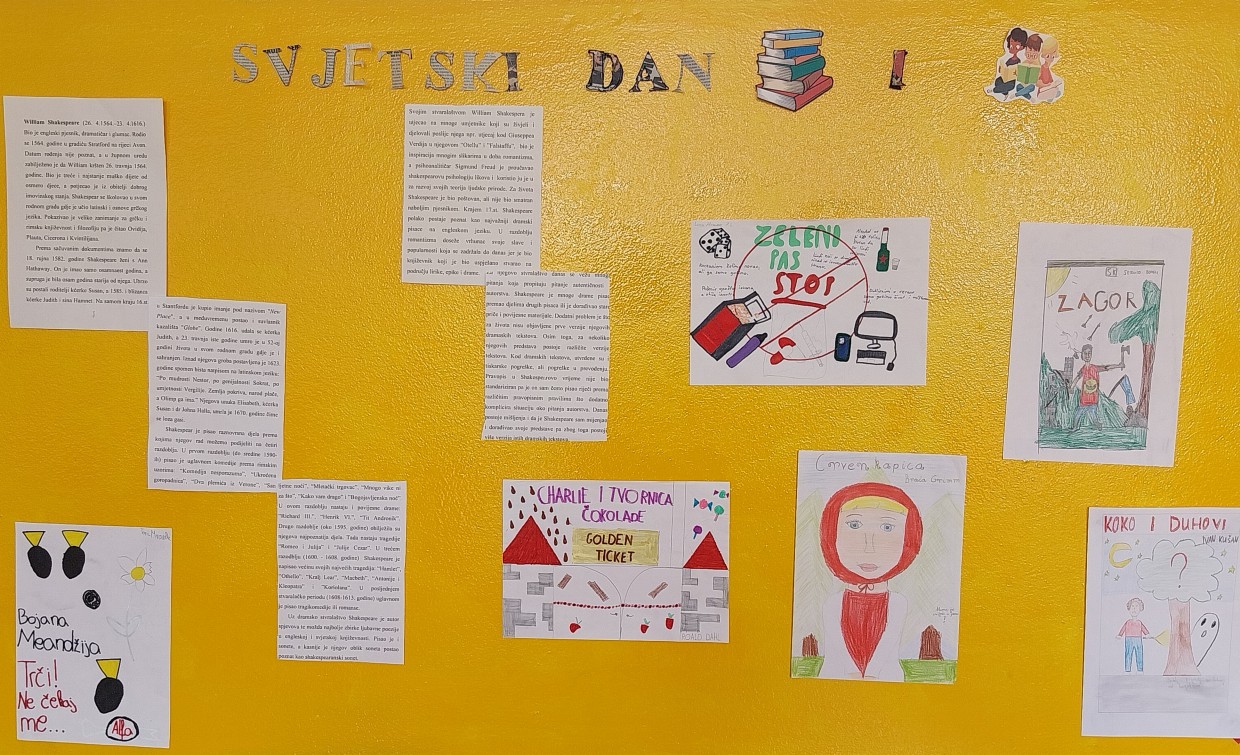 SVJETSKI DAN I
William Shakespeare (26. 4.1564.-23. 4.1616.)
Bio je engleski pjesnik, dramatičar i glumac. Rođen
se 1564. godine u gradiću Stratford na rijeci Avon.
Datum rođenja nije poznat, a u župnom uredu
zabilježeno je da William kršten 26. travnja 1564.
godine. Bio je treće i najstarije muško dijete od
osmero djece, a potjecao je iz obitelji dobrog
imovinskog stanja. Shakespear se školovao u svom
rodnom gradu gdje je učio latinski i osnove grčkog
jezika. Pokazivao je veliko zanimanje za grčku i
rimsku književnost i filozofiju pa je čitao Ovidija,
Plauta, Cicerona i Kvintilijana.
Prema sačuvanim dokumentima znamo da se
18. rujna 1582. godine Shakespeare ženi s Ann
Hathaway. On je imao samo osamnaest godina, a
supruga je bila osam godina starija od njega. Ubrzo
su postali roditelji kćerke Susan, a 1585. i blizance
kćerke Judith i sina Hamnet. Na samom kraju 16.st
u Stantfordu je kupio imanje pod nazivom "New
Place", a u međuvremenu postao i suvlasnik
kazališta "Globe". Godine 1616. udala se kćerka
Judith, a 23. travnja iste godine umro je u 52-oj
godini života u svom rodnom gradu gdje je i
sahranjen. Iznad njegova groba postavljena je 1623.
godine spomen bista natpisom na latinskom jeziku:
"Po mudrosti Nestor, po genijalnosti Sokrat, po
umjetnosti Vergilije. Zemlja pokriva, narod plače,
a Olimp ga ima." Njegova unuka Elisabeth, kćerka
Susan i dr Johna Halla, umrla je 1670. godine čime
se loza gasi.
Shakespear je pisao raznovrsna djela prema
kojima njegov rad možemo podijeliti na četiri
razdoblja. U prvom razdoblju (do sredine 1590-
ih) pisao je uglavnom komedije prema rimskim
uzorima: "Komedija nesporazuma", "Ukroćena
goropadnica", "Dva plemića iz Verone", "San
ljetne noći", "Mletački trgovac", "Mnogo vike ni
za što", "Kako vam drago" i "Bogojavljenska noć"
U ovom razdoblju nastaju i povijesne drame:
"Richard III.", "Henrik VI.", "Tit Andronik".
Drugo razdoblje (oko 1595. godine) obilježila su
njegova najpoznatija djela. Tada nastaju tragedije
"Romeo i Julija" i "Julije Cezar". U trećem
razdoblju (1600. – 1608. godine) Shakespeare je
napisao većinu svojih najvećih tragedija: "Hamlet",
"Othello", "Kralj Lear", "Macbeth", "Antonije i
Kleopatra" i "Koriolana". U posljednjem
stvaralačke periodu (1608-1613. godine) uglavnom
je pisao tragikomedije ili romanse.
Uz dramsko stvaralštvo Shakespeare je autor
spjevova te možda najbolje zbirke ljubavne poezije
u engleskoj i svjetskoj književnosti. Pisao je i
sonete, a kasnije je njegov oblik soneta postao
poznat kao shakespearanski sonet.
Svojim stvaralaštvom William Shakespere je
utjecao na mnoge umjetnike koji su živjeli i
djelovali poslije njega npr. utjecaj kod Giuseppea
Verdija u njegovom "Otellu" i "Falstaffu", bio je
inspiracija mnogim slikarima u doba romantizma,
a psihoanalitičar Sigmund Freud je proučavao
shakespearovu psihologiju likova i koristio ju je u
za razvoj svojih teorija ljudske prirode. Za života
Shakespeare je bio poštovan, ali nije bio smatran
naboljim pjesnikom. Krajem 17.st. Shakespeare
polako postaje poznat kao najvažniji dramski
pisac na engleskom jeziku. U razdoblju
romantizma doseže vrhunac svoje slave i
popularnosti koja se zadržala do danas jer je bio
književnik koji je bio uspješno stvarao na
području lirike, epike i drame.
Uz njegovo stvaralaštvo danas se vežu mnoga
pitanja koja propituju pitanje autentičnosti i
autorstva. Shakespeare je mnoge drame pisao
prema djelima drugih pisaca ili je dorađivao stare
priče i povijesne materijale. Dodatni problem je što
za života nisu objavljene prve verzije njegovih
dramskih tekstova. Osim toga, za nekoliko
njegovih predstava postoje različite verzije
tekstova. Kod dramskih tekstova, utvrđene su i
tiskarske pogreške, ali pogreške u prevođenju.
Pravopis u Shakesperovo vrijeme nije bio
standariziran pa je on sam često pisao riječi prema
različitim pravopisnim pravilima što dodatno
komplicira situaciju oko pitanja autorstva. Danas
postoje mišljenja i da je Shakespeare sam mijenjao
i dorađivao svoje predstave pa zbog toga postoji
više verzija istih dramskih tekstova.
ZELENI
PAS
STOP
ZAGOR
CHARLIE I TVORNICA
ČOKOLADE
GOLDEN
TICKET
ROALD DAHL
Crvenkapica
Braća Grimm
KOKO I DUHOVI
IVAN KUŠAN
?
Bojana
Meandžija
Trči!
Ne čekaj
me...
Alfa